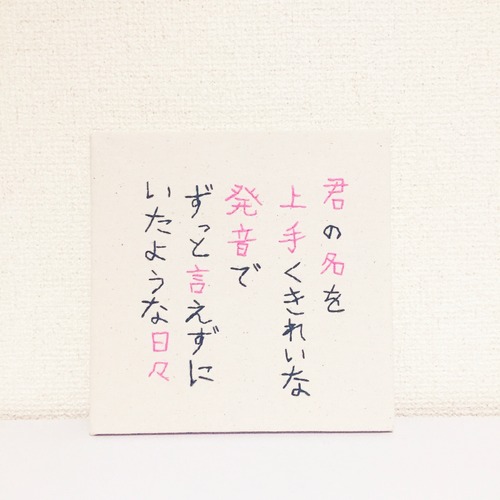 君の名を
上手くきれいな
発音で
ずっと言えずに
いたような日々